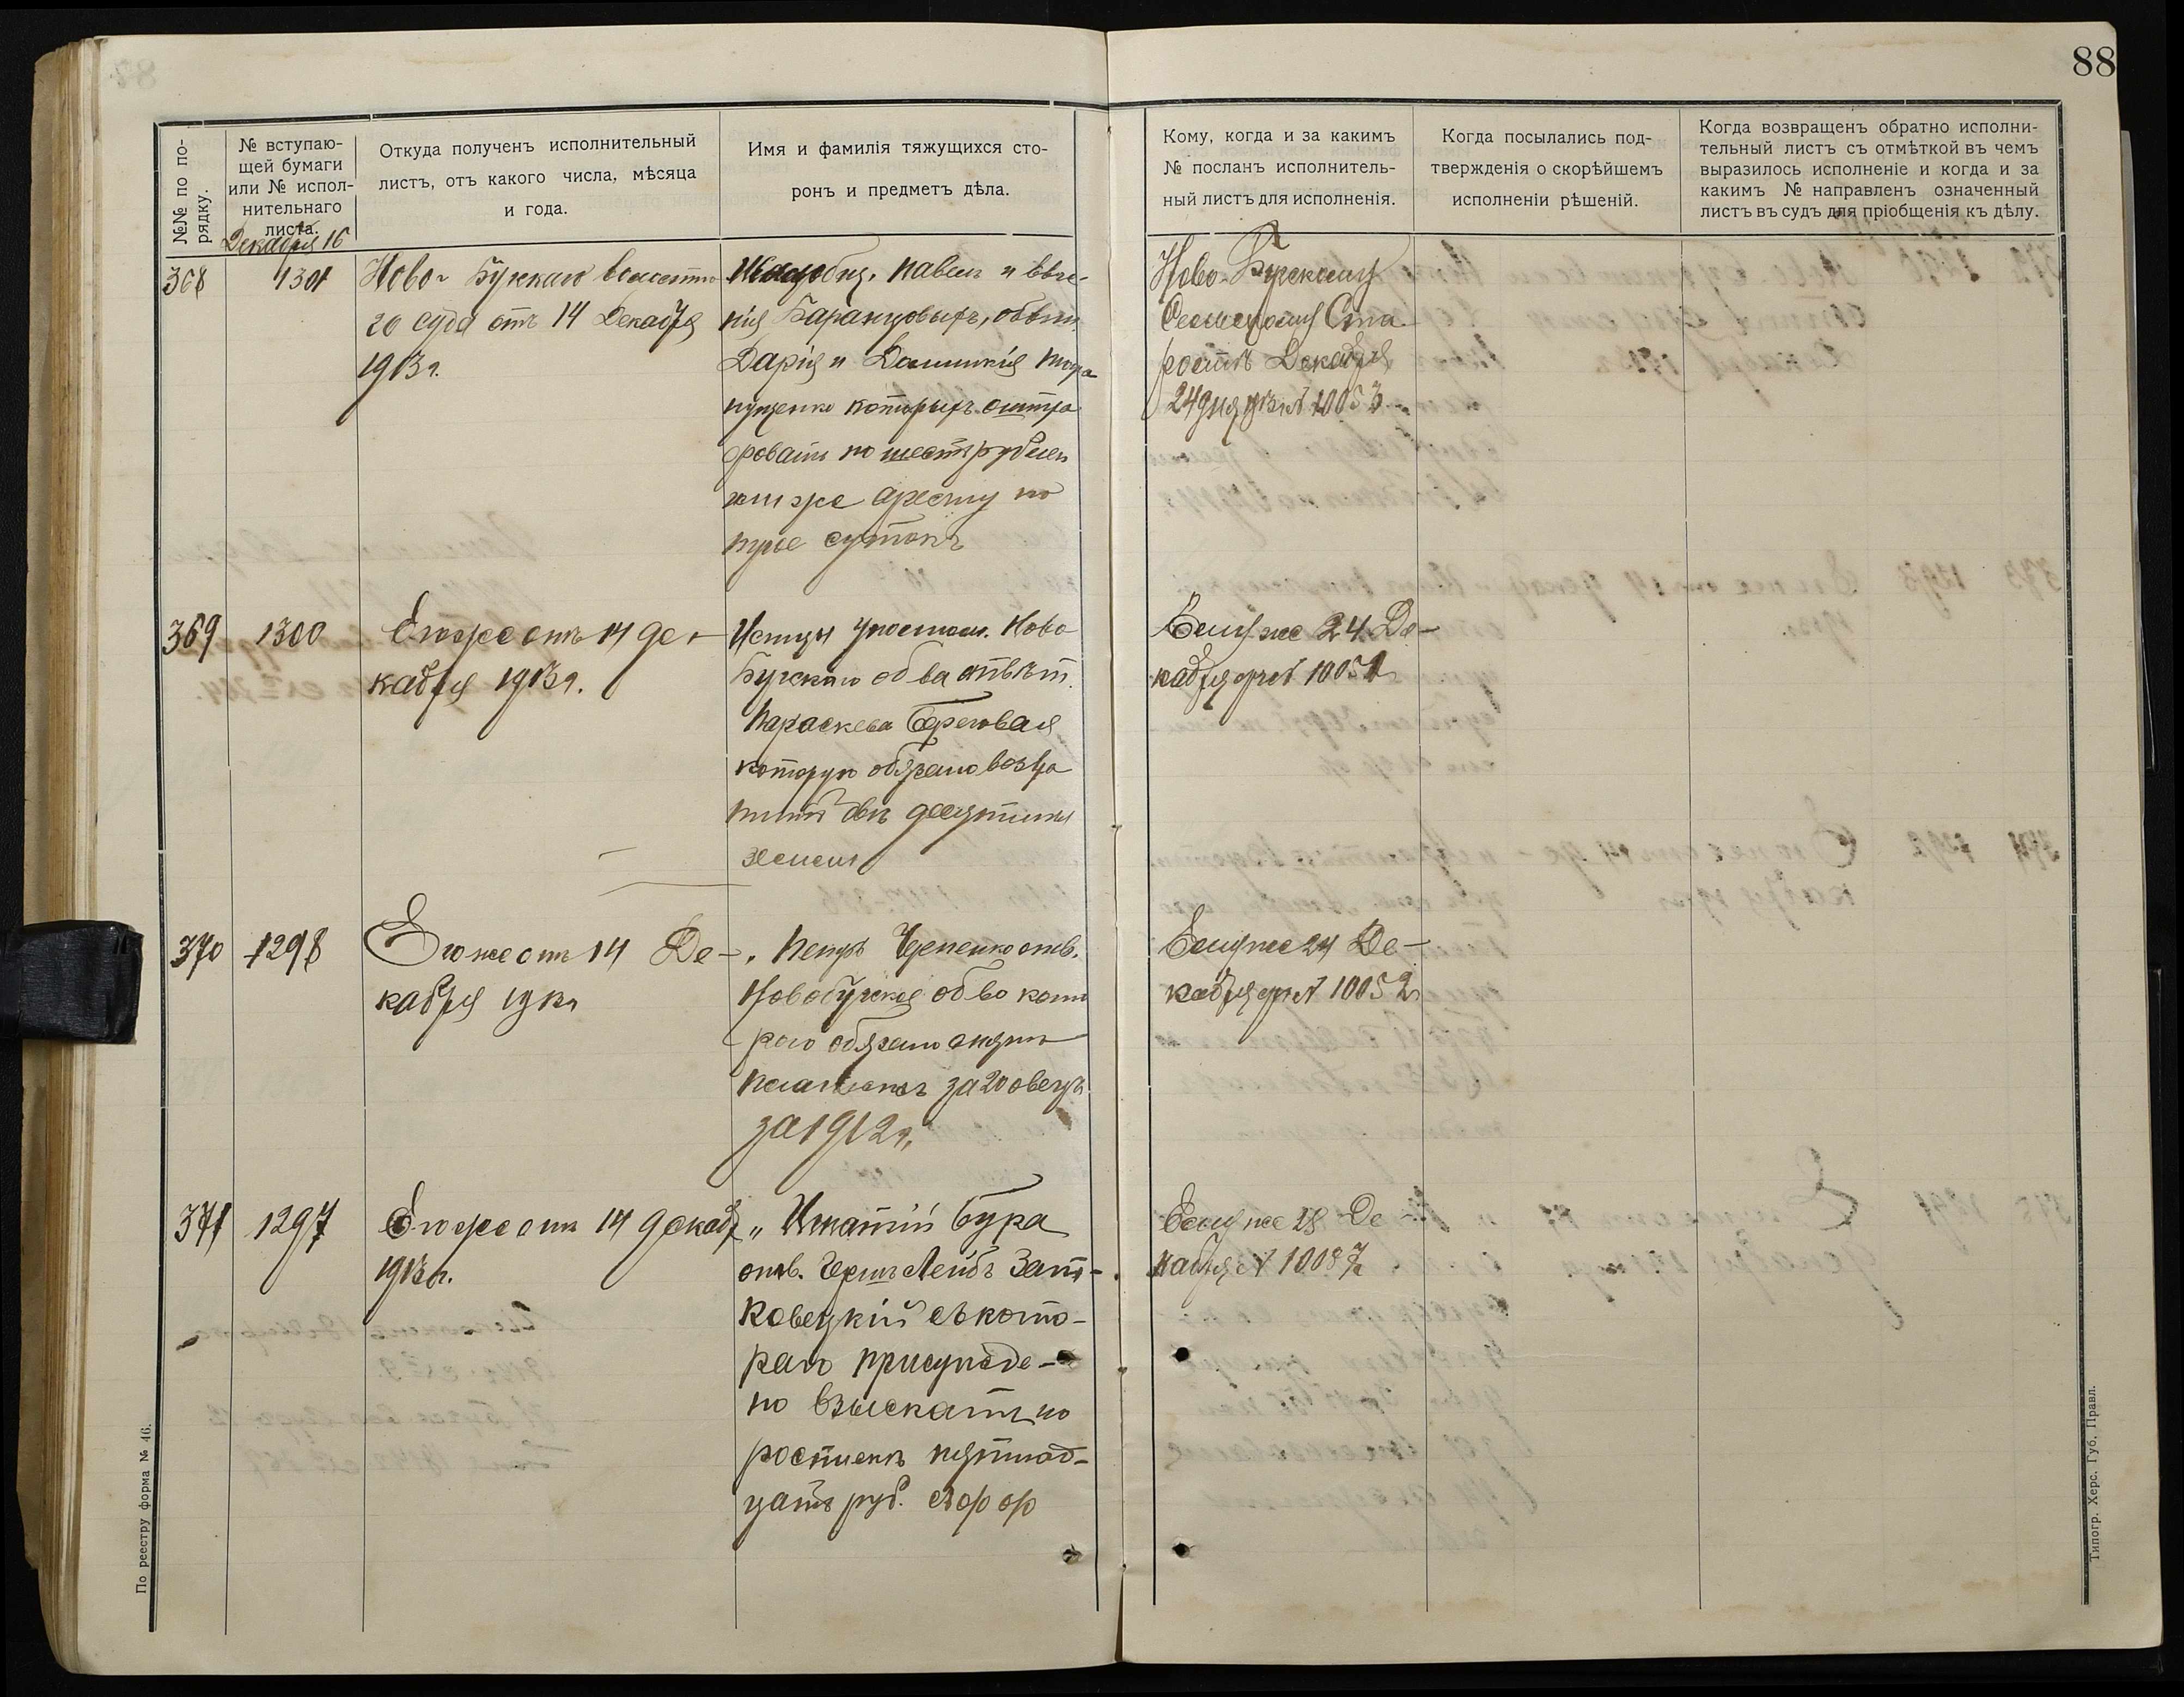 88
№№ по по-
рядку.
№ вступаю-
щей бумаги
или № испол-
нительнаго
листа.
Откуда полученъ исполнительный
листъ, отъ какого числа, мѣсяца
и года.
Имя и фамилія тяжущихся сто-
ронъ и предметъ дѣла.
Кому, когда и за какимъ
№ посланъ исполнитель-
ный листъ для исполненія.
Когда посылались под-
твержденія о скорѣйшемъ
исполненіи рѣшеній.
Когда возвращенъ обратно исполни-
тельный листъ съ отмѣткой въ чемъ
выразилось исполненіе и когда и за
какимъ № направленъ означенный
листъ въ судъ для пріобщенія къ дѣлу.
Декабря 16
368
1301
Ново-Бугскаго волостно
го суда отъ 14 Декабря
1913 г.
Павелъ и
Баранцовыхъ, обвин
Дарія и
которыхъ оштра
фовать по шесть рублей
или же аресту по
трое сутокъ
Ново-Бугскому
Сельскому Ста
ростѣ Декабря
24 дня № 10053
369
1300
Его же отъ 14 де-
кабря 1913 г.
Истцы Ново
Бугскаго об ва отвѣт.
Параскева Береговая
которую обязано возвра
тить двѣ десятины
земли
Ему же 24 Де-
кабря № 10051
370
1298
Его же отъ 14 Де-
кабря 1913 г.
" Петръ Черненко отв.
Новобугское об во кото
раго обязано
за 20 овецъ
за 1912 г.
Ему же 24 Де-
кабря № 10052
371
1297
Его же отъ 14 декабр
1913 г.
" Игнатій Бура
отв. Герш Лейбъ Зат-
ковецкій съ кото-
раго присужде-
но взыскать по
роспискѣ пятнад-
цать руб.
Ему же 28 Де
кабря № 10087
По реестру форма № 46.
Типогр. Херс. Губ. Правл.